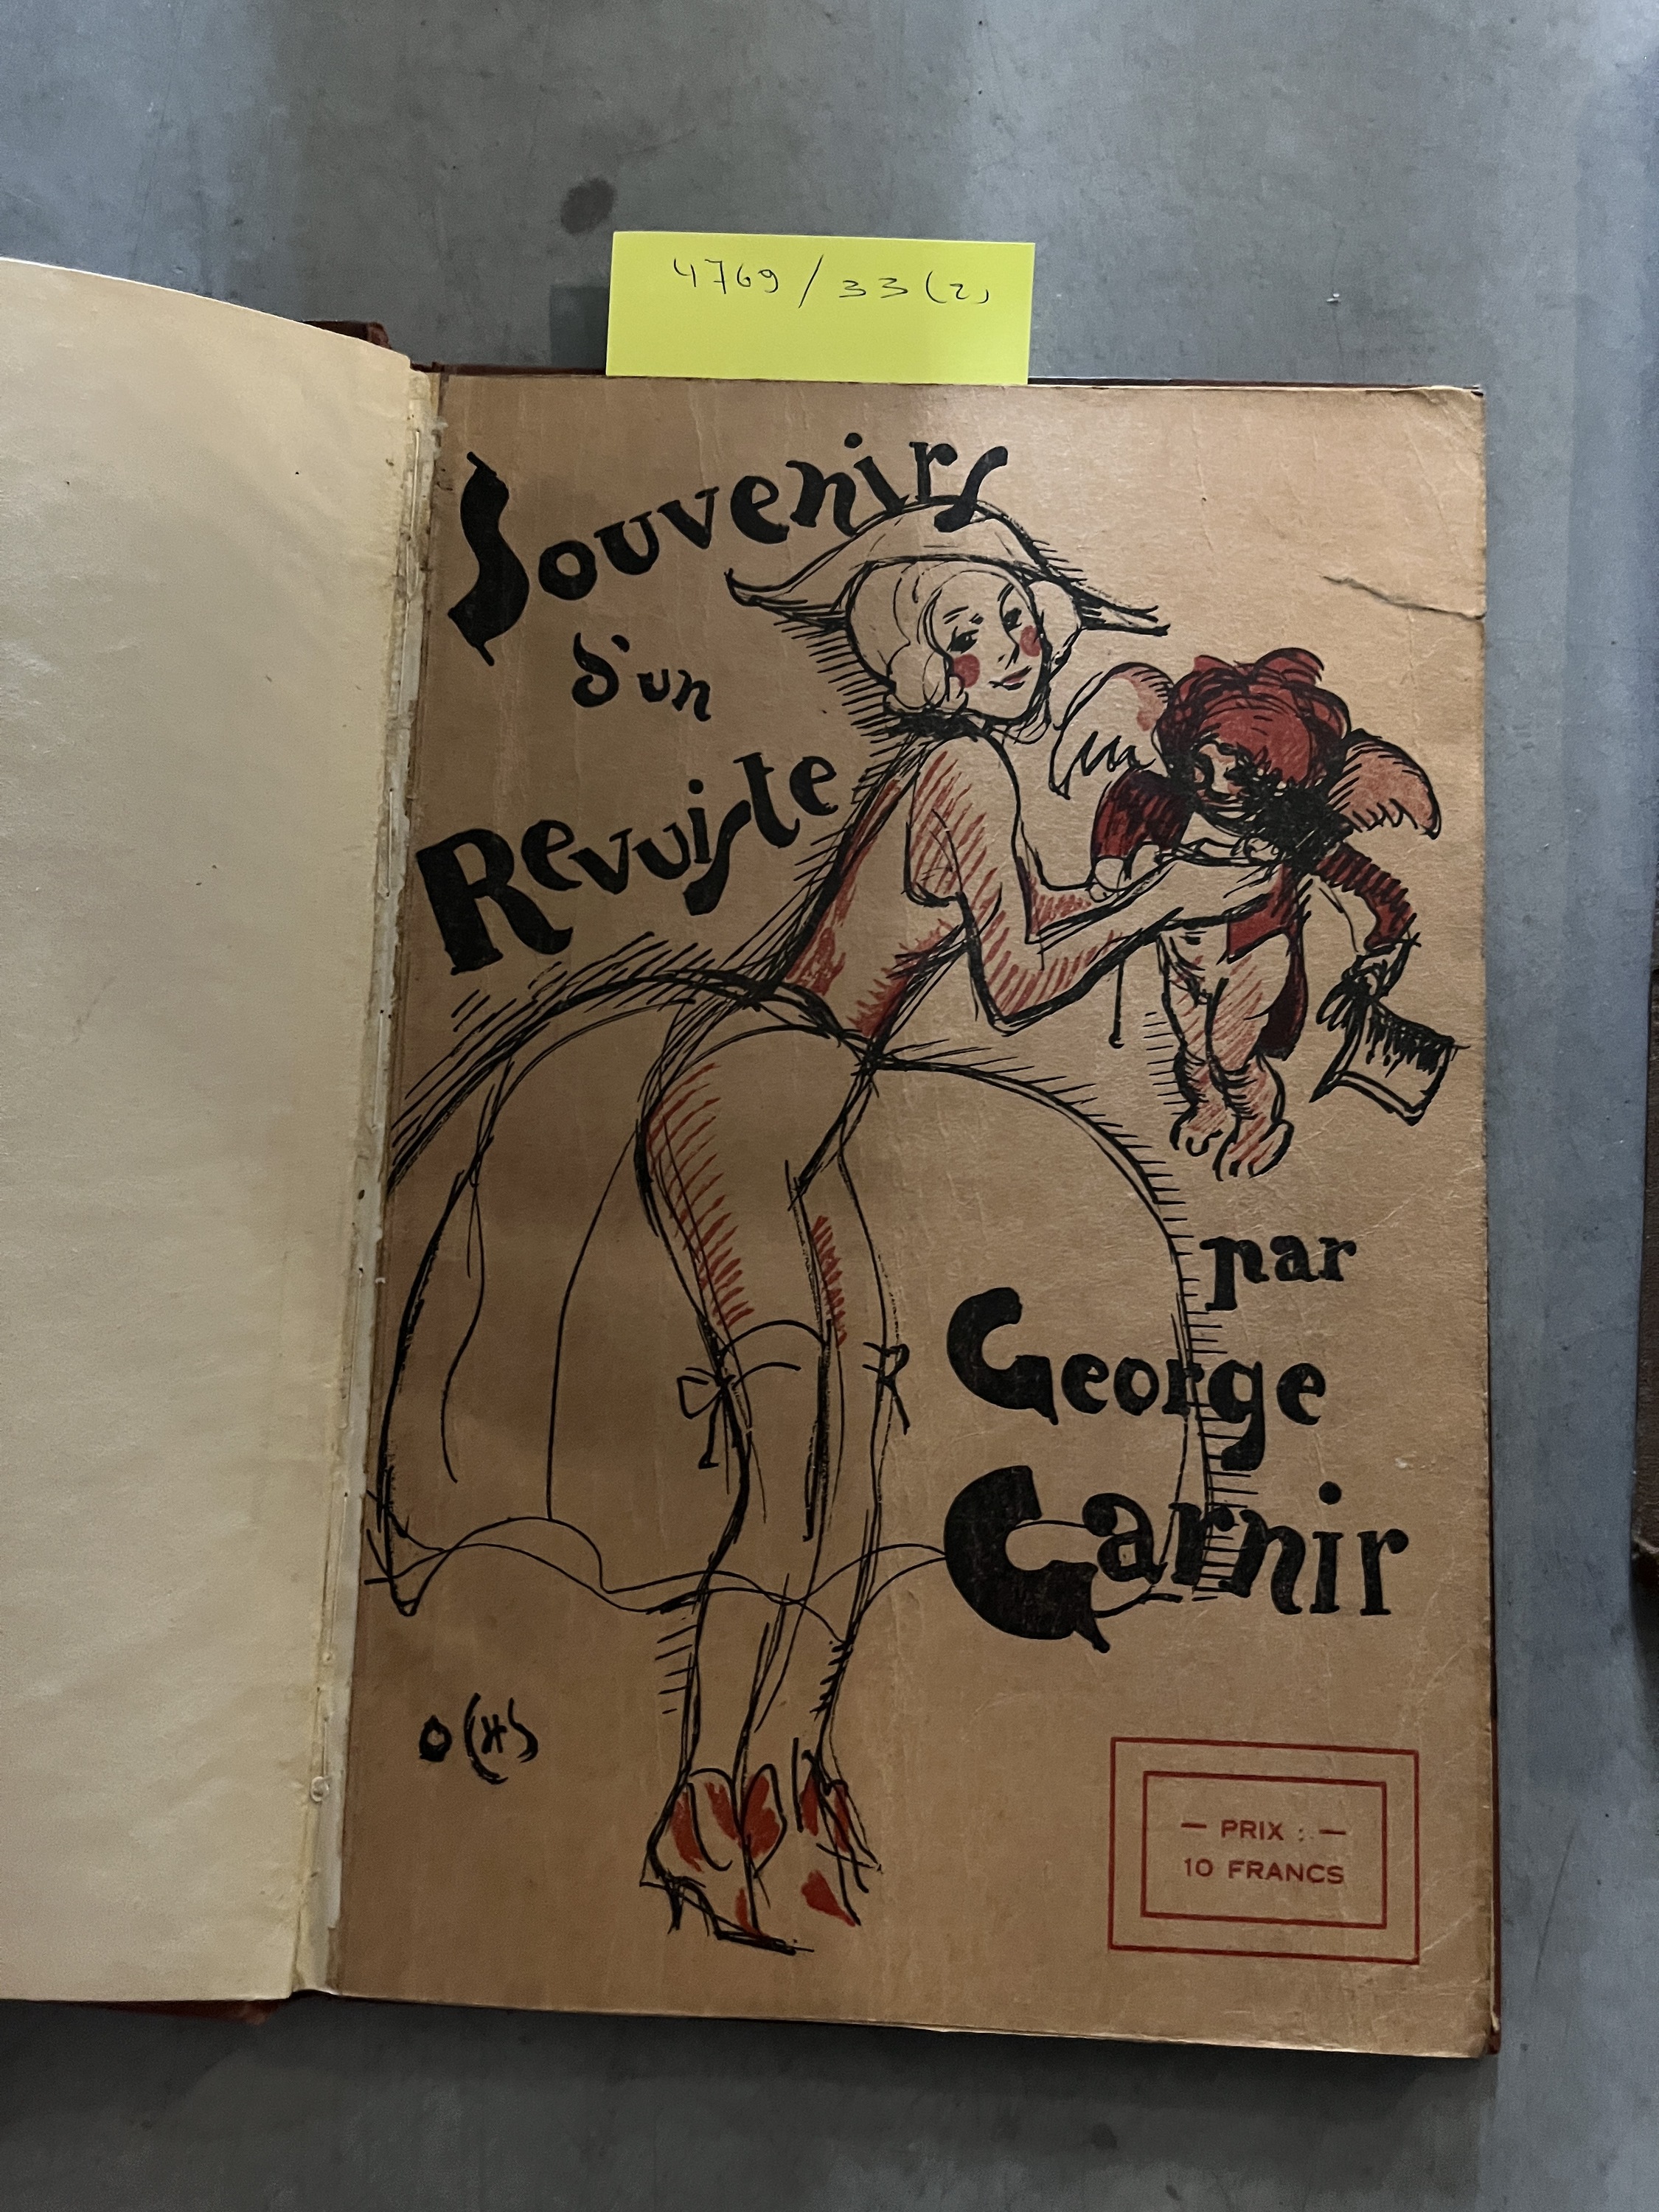 4769/33(2)
Souvenirs
d'un
Revuiste
par
George
Garnir
OCHS
— PRIX : —
10 FRANCS